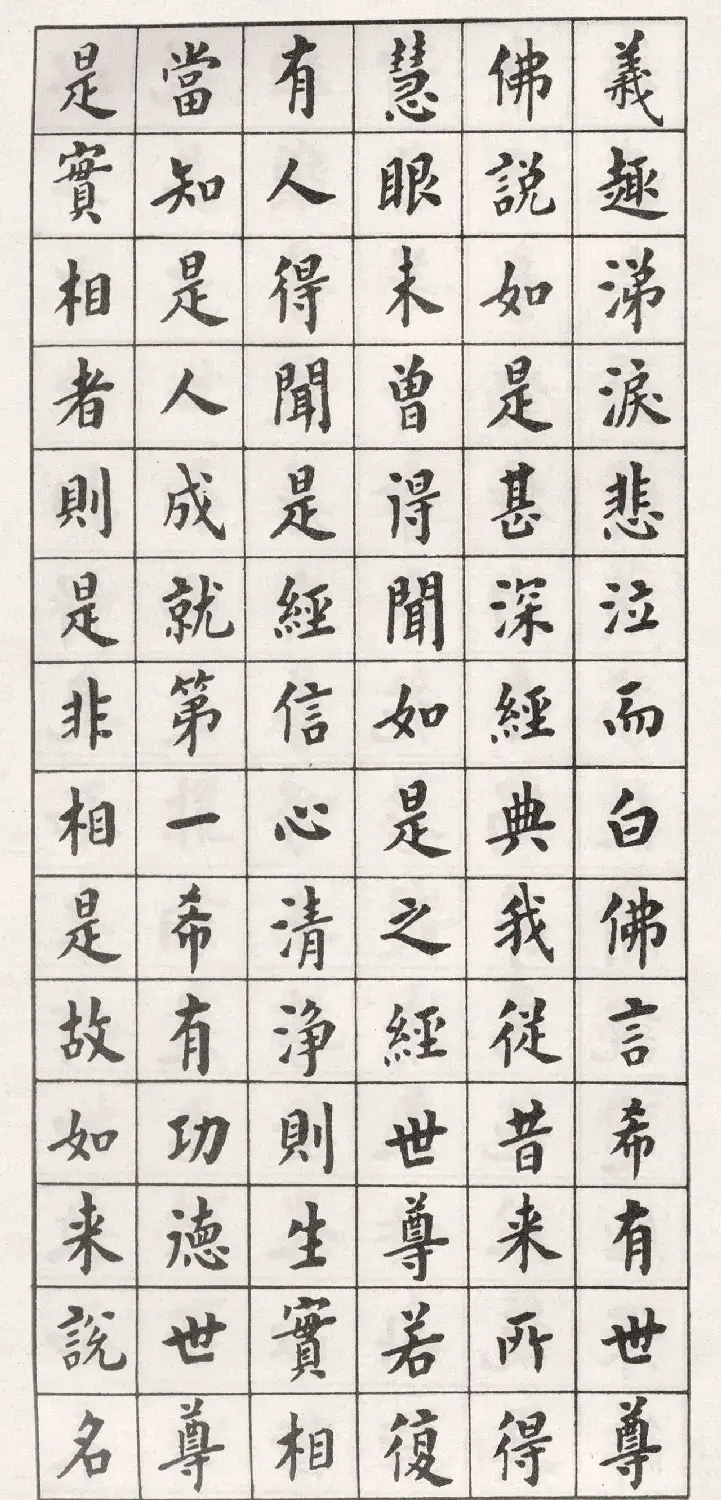 義趣涕淚悲泣而白佛言希有世尊
佛說如是甚深經典我從昔来所得
慧眼未曽得聞如是之經世尊若復
有人得聞是經信心清淨則生實相
當知是人成就第一希有功德世尊
是實相者則是非相是故如来說名